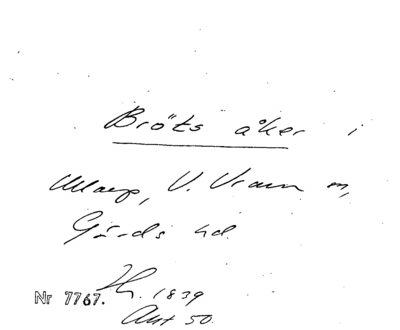 Bröts åker i
Maep, V. Vram m,
Gärds hd.
H. 1839
Nr 7767.
Akt 50.